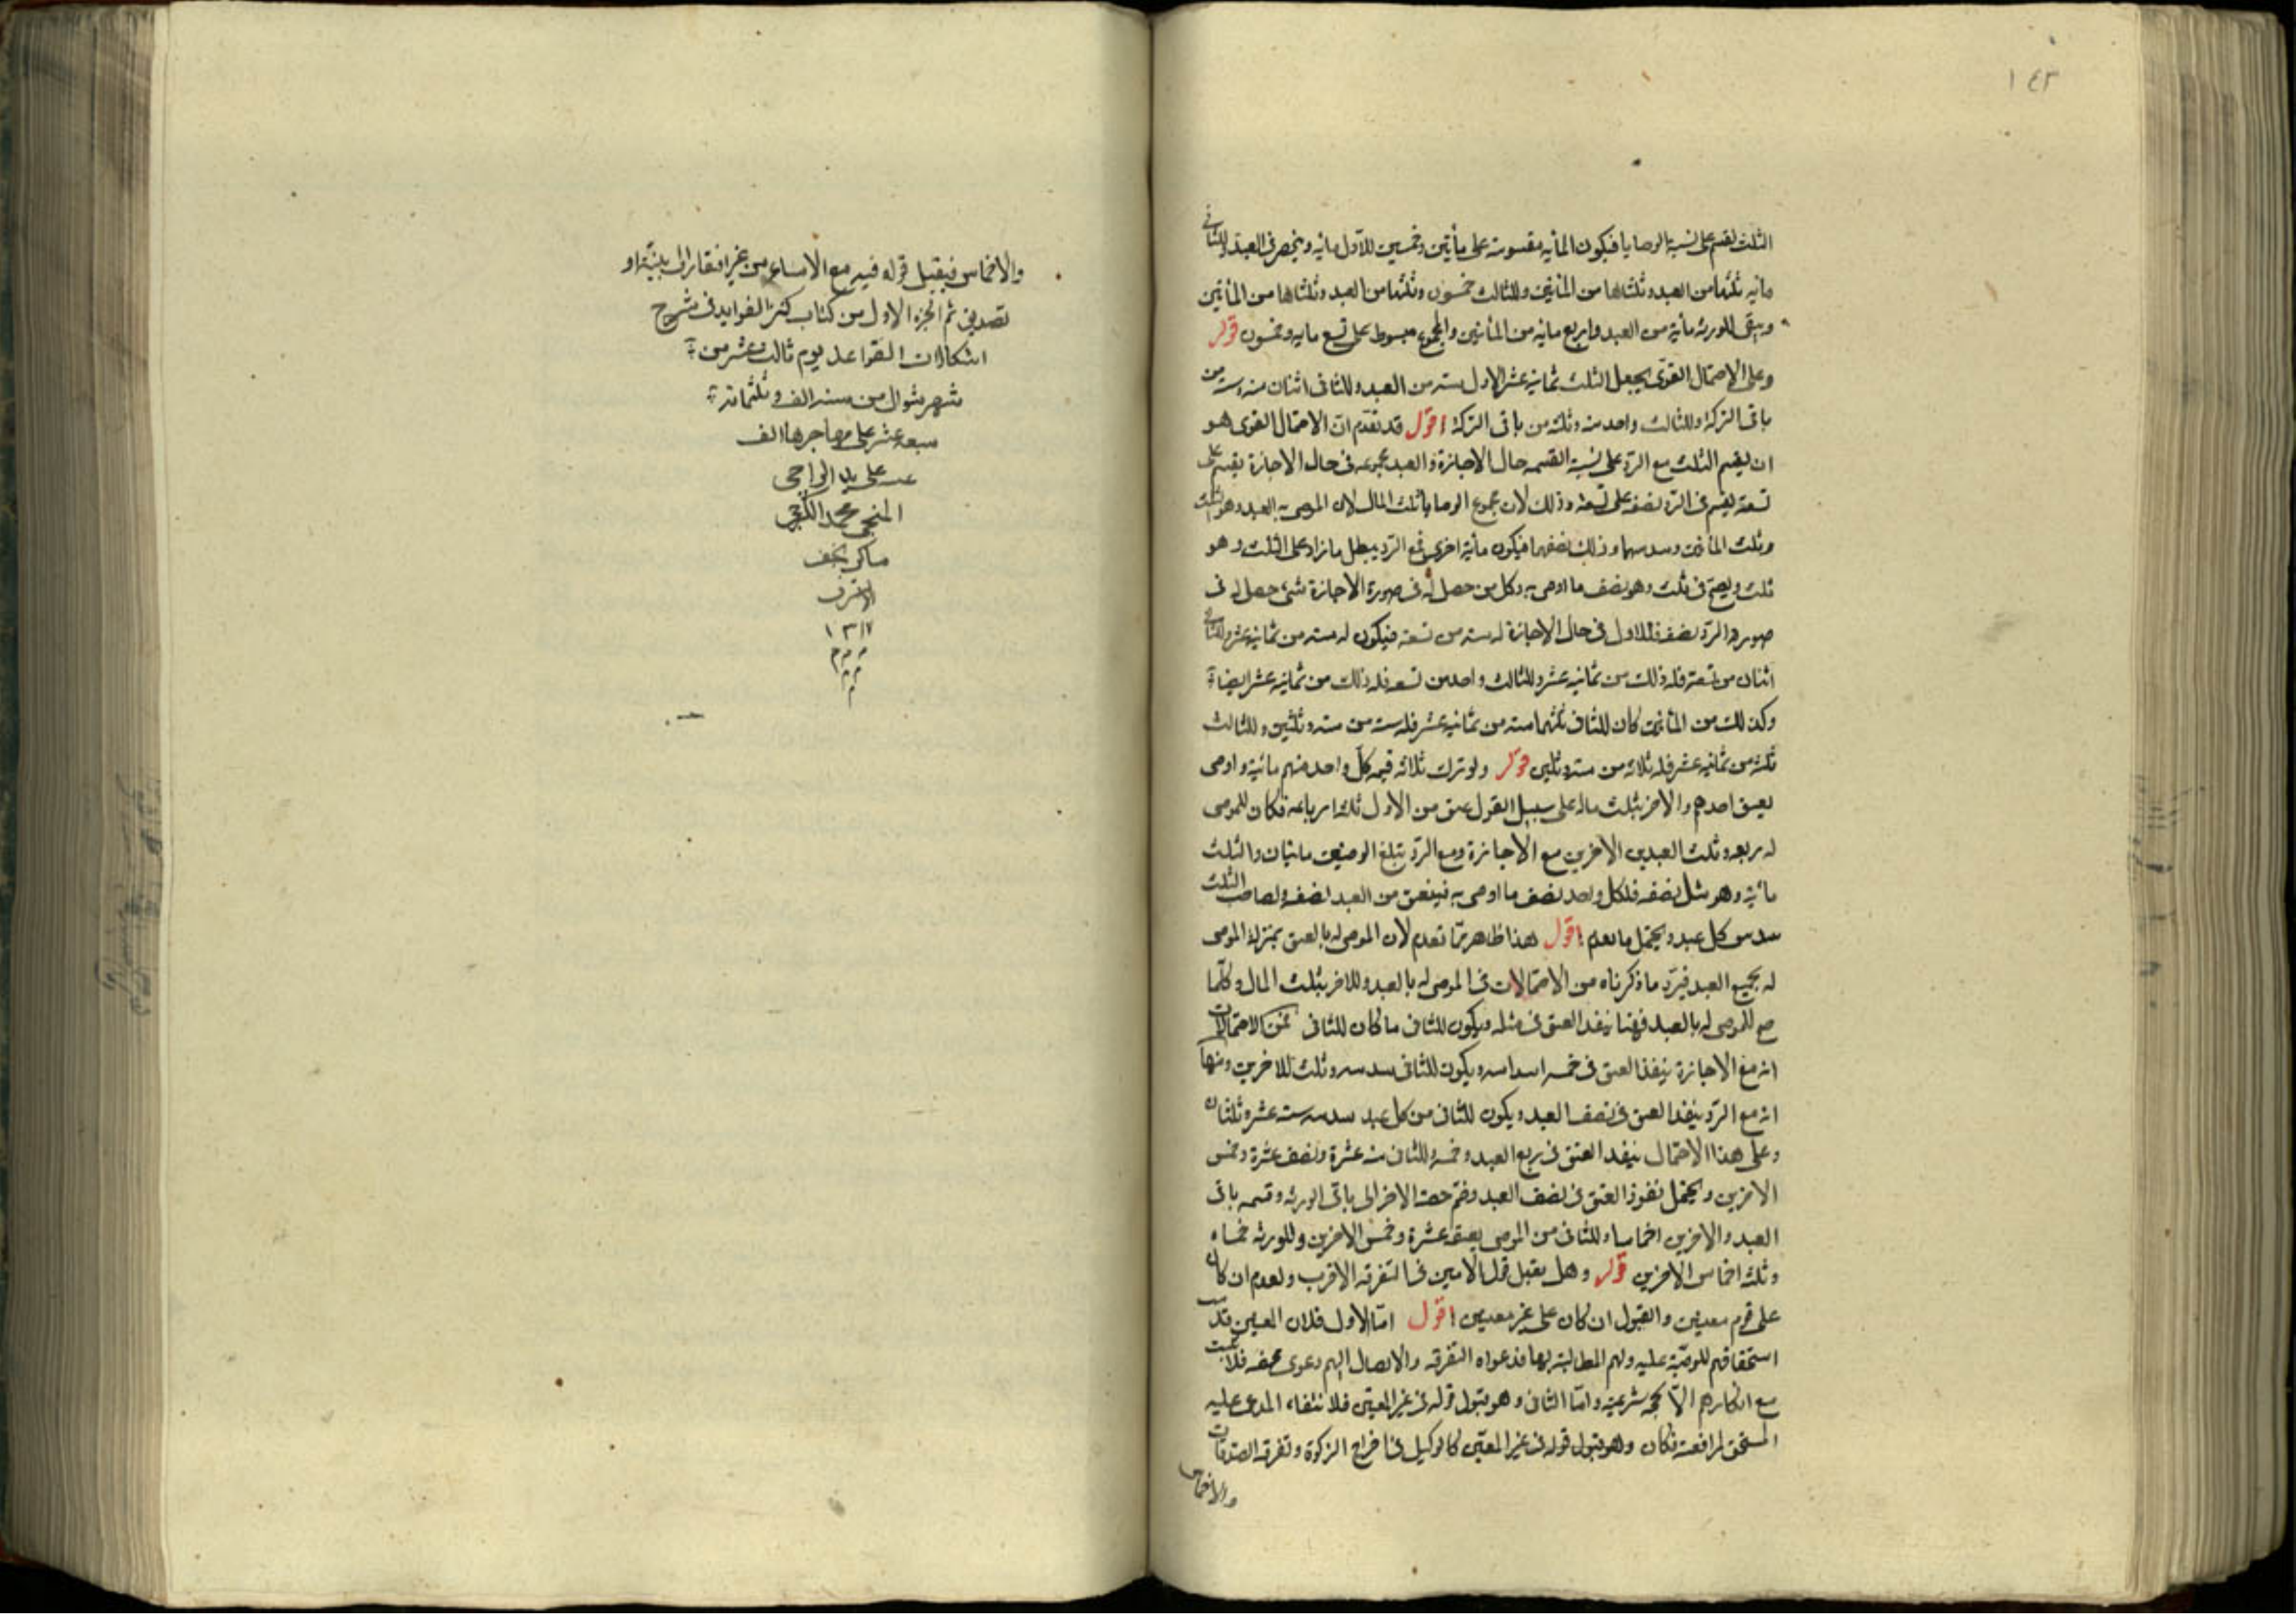 ١٤٣
الثلث يقسم على نسبة الوصايا فيكون المأيه مقسومة على مأيتين وخمسين للاول مايه وينحصر فى العبد وللثانى
مايه ثلثها من العبد وثلثاها من المأتين وللثالث خمسون وثلثها من العبد وثلثاها من المأتين
ويبقى للورثه مأية من العبد واربع مايه من المأتين والمجموع مبسوط على تسع مايه وخمسون قوله
وعلى الاحتمال القوى يجعل الثلث ثمانية عشر للاول سته من العبد وللثانى اثنان منه وسته من
باقى التركة وللثالث واحد منه وثلثه من باقى التركة اقول قد تقدم ان الاحتمال القوى هو
ان يقسم الثلث مع الرد على نسبة القسمه حال الاجازة والعبد مجموعه فى حال الاجازة يقسم على
تسعة يقسم فى الرد نصفه على تسعة وذلك لان مجموع الوصايا ثلث المال لان الموصى به العبد وهو الثلث
وثلث المأتين وسدسهما وذلك نصفهما فيكون مأية اخرى فمع الرد يبطل ما زاد على الثلث وهو
ثلث ويصح فى ثلث وهو نصف ما اوصى به وكل من حصل له فى صورة الاجازة شئ حصل له فى
صورة الرد نصفه فللاول فى حال الاجازة له سته من تسعه فيكون له سته من ثمانية عشر وللثانى
اثنان من تسعة فله ذلك من ثمانيه عشر وللثالث واحد من تسعه فله ذلك من ثمانيه عشر ايضا
وكذلك من المأتين كان للثانى ثلثهما سته من ثمانيه عشر فله سته من سته وثلثين وللثالث
ثلثه من ثمانية عشر فله ثلاثه من سته وثلثين قوله ولو ترك ثلاثه قيمة كل واحد منهم مائة واوصى
بعتق احدهم والاخر بثلث ماله على سبيل العول عتق من الاول ثلثه ارباعه فكان للموصى
له ربعه وثلث العبدين الاخرين مع الاجازة ومع الرد تبلغ الوصيتين مايتان والثلث
مأية وهو مثل نصفه فلكل واحد نصف ما اوصى به فينعتق من العبد نصفه ولصاحب الثلث
سدس كل عبد ويحتمل ما تقدم اقول هذا ظاهر مما تقدم لان الموصى له بالعتق بمنزلة الموصى
له بجميع العبد فيرد ما ذكرناه من الاحتمالات فى الموصى له بالعبد وللاخر بثلث المال وكلما
صح للموصى له بالعبد فهنا ينفذ العتق فى مثله ويكون للثانى ما كان للثانى فمن الاحتمالات
انه مع الاجازة ينفذ العتق فى خمسه اسداسه ويكون للثانى سدسه وثلث للاخرين ومنها
انه مع الرد ينفذ العتق فى نصف العبد ويكون للثانى من كل عبد سدسه سته عشر وثلثان
وعلى هذا الاحتمال ينفذ العتق فى ربع العبد وخمسه وللثانى منه عشرة ونصف عشرة وخمس
الاخرين ويحتمل نفوذ العتق فى نصف العبد وضم حصة الاخر الى باقى الورثه وقسمه باقى
العبد والاخرين اخماسا وللثانى من الموصى بعتقه عشرة وخمس الاخرين وللورثه خمساه
وثلثه اخماس الاخرين قوله وهل يقبل قول الامين فى التفرقه الاقرب والعدم ان كان
على قوم معينين والقبول ان كان على غير معينين اقول اما الاول فلان المعين قد ثبت
استحقاقهم للوصية عليه ولهم المطالبة بها فدعواه التفرقه والايصال اليهم دعوى محضه فلا تثبت
مع انكارهم الا بحجه شرعيه واما الثانى وهو قبول قوله فى غير المعين فلانتفاء المدعى عليه
المستحق لمرافعته فكان وهو قبول قوله فى غير المعين كالوكيل فى اخراج الزكوة وتفرقه الصدقات
والاخماس
والاخماس فيقبل قوله فيه مع الامساع من غير افتقار الى بينة او
تصديق تم الجزء الاول من كتاب كنز الفوايد فى شرح
اشكالات القواعد يوم ثالث وعشر من
شهر شوال من سنه الف وثلثمائة
سبعه عشر على مهاجرها الف
على يد الراجى
المنجى محمد
ساكن نجف
الاشرف
١٣١٧
م م م
م م
م